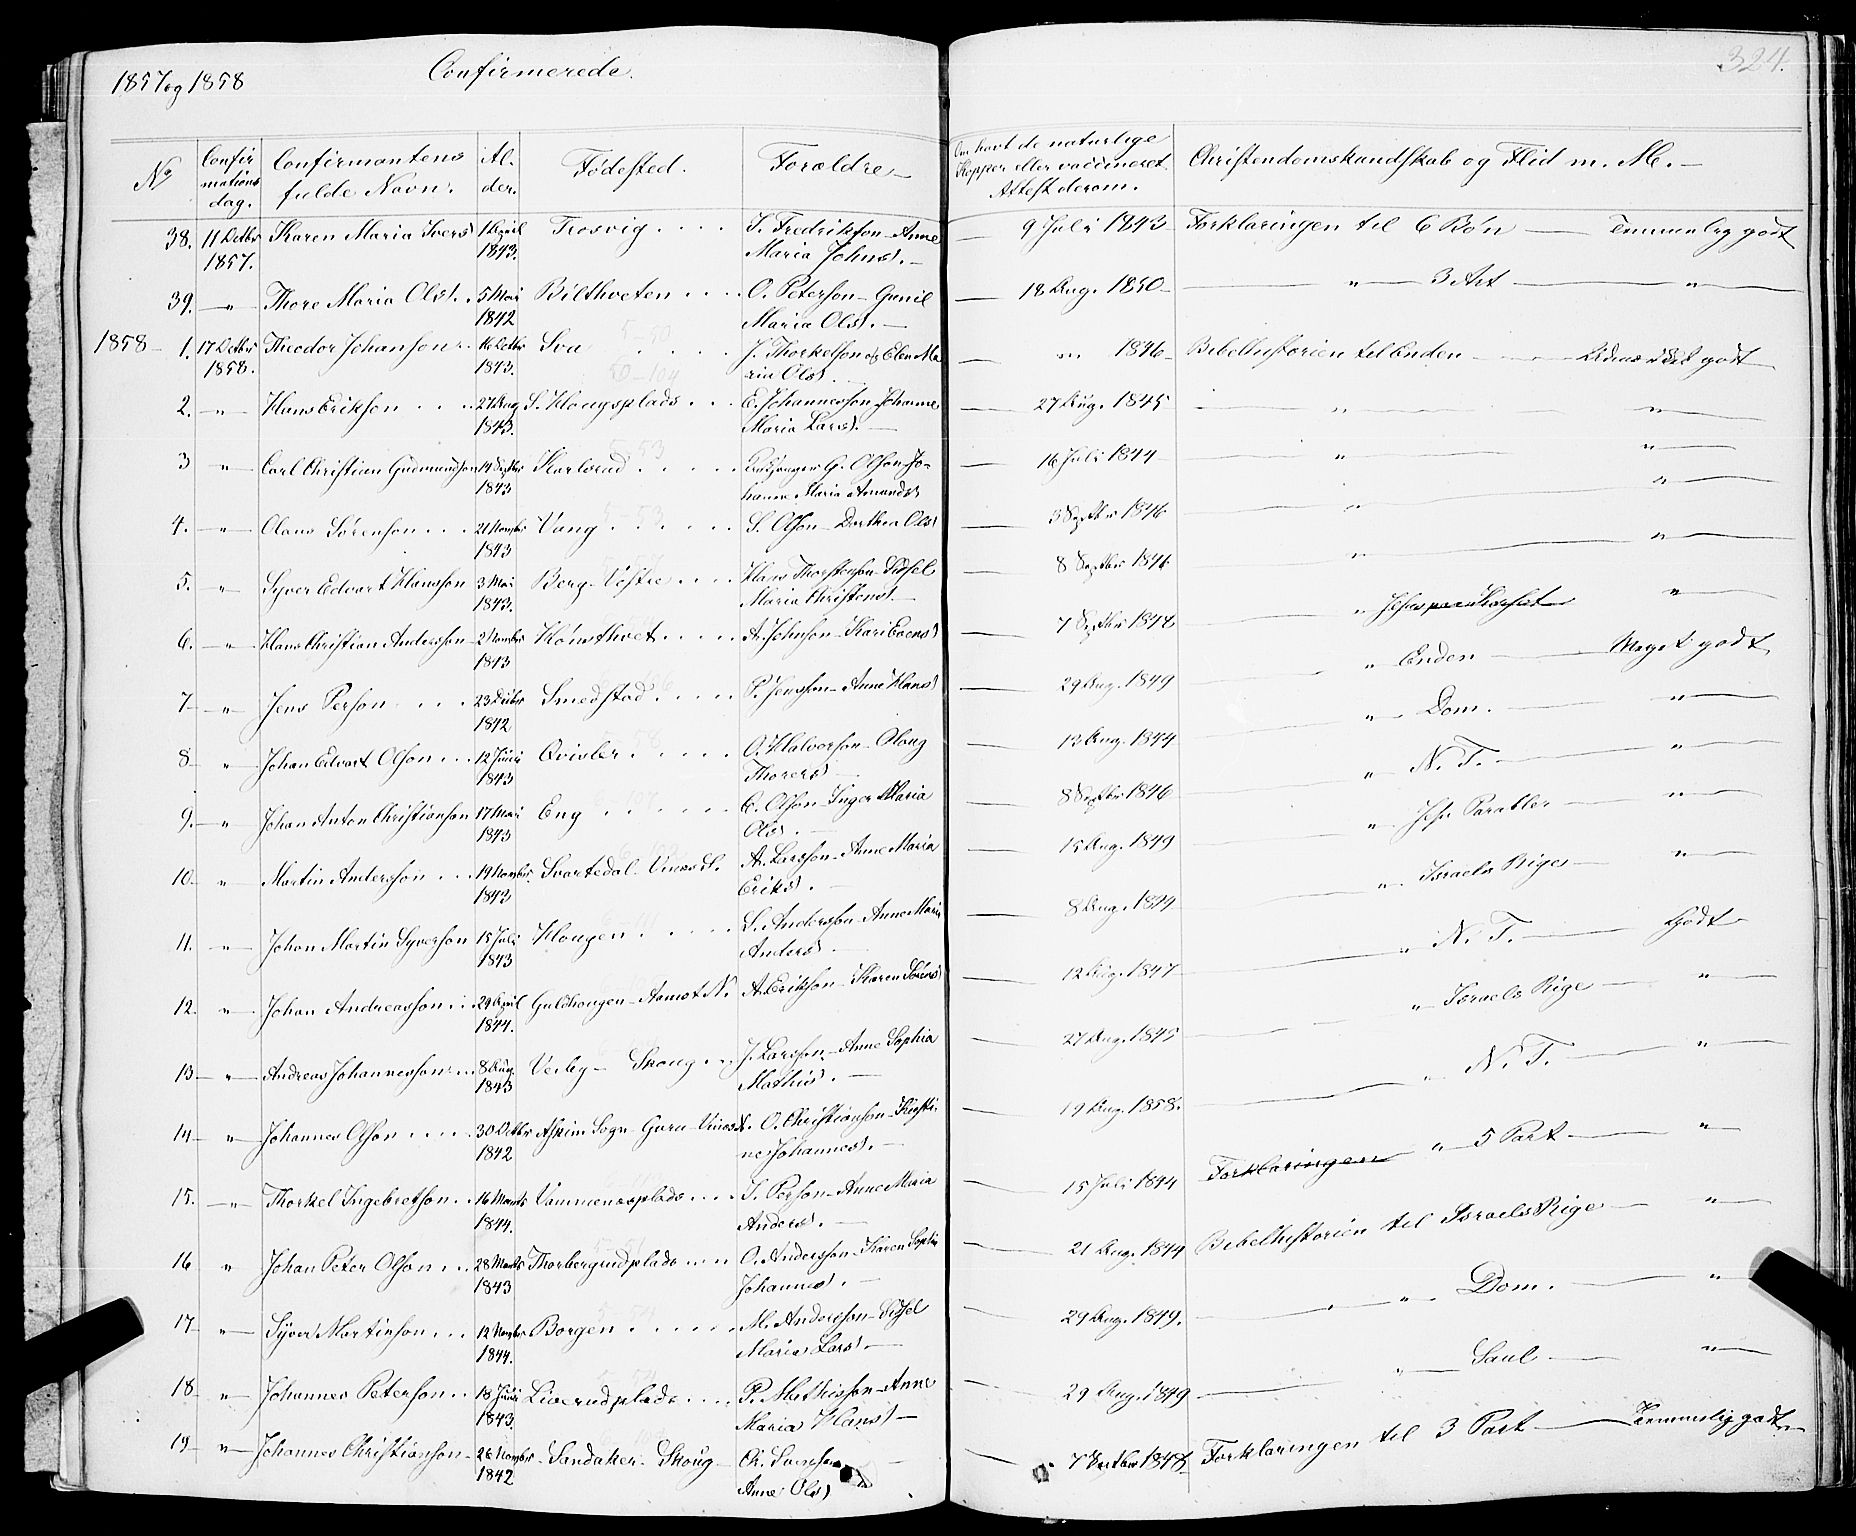 1857 og 1858 Confirmerede. 324.
No Confirmations dag. Confirmantens fulde Navn. Alder. Fødested. Forældre Om havt de naturlige Kopper eller vaccineret. Attest derom. Christendomskundskab og Flid m. M.
38. 11 Octbr 1857. Karen Maria Ivers 1843. Trosvig J. Fredrikson - Anne Maria Johns. 9 Juli 1843 Forklaringen til 6 Bøn Temmelig godt
39. " Thore Maria Ols. 5 Mai 1842 Bilthveten O. Peterson - Gunil Maria Ols. 18 Aug. 1850 " 3 Art "
1858 1. 17 Octbr 1858. Theodor Johanson 16 Octbr 1843. J. Thorkelson og Elen Maria Ols. 1846 Bibelhistorien til Enden godt
2. " Hans Erikson 27 Aug 1843. S. Hougsplads E. Johannesson - Johanne Maria Lars. 27 Aug. 1845 " "
3 " Carl Christian Gudmundson 14 Septbr 1843 Karlsrud G. Olson - Johanne Maria Amunds 16 Juli 1844 " "
4. " Olaus Sørenson 21 Novbr 1843 Vang S. Olson - Dorthea Ols 3 Septbr 1846 " "
5. " Syver Edvart Hansson 3 Mai 1843. Berg - Vestre Hans Thorstenson - Sidsel Maria Christens. 8 Septbr 1846 " "
6. " Hans Christian Andersson 2 Novbr 1843 Hønsthvet A. Johnson - Kari Evens 7 Septbr 1848 " "
7 " Jens Person 23 Decbr 1842 Smedstad P. Jensson - Anne Hans 29 Aug. 1849 " Enden Meget godt
8 " Johan Edvart Olson 12 Juni 1843 Qvisler O. Halvorson - Olaug Thorers 13 Aug. 1844 " Dom. "
9. " Johan Anton Christianson 17 Mai 1843 Eng C. Olson - Inger Maria Ols. 8 Septbr 1846 " N. T. "
10. " Martin Anderson 19 Novbr. 1843 Svartedal - A. Larsson - Anne Maria Eriks. 15 Aug. 1849 " Jesu Parabler "
11. " Johan Martin Syverson 15 Juli 1843 Hougen S. Anderson - Anne Maria Anders. 8 Aug. 1844 " Israels Riges "
12. " Johan Andreasson 29 April 1844. Guldhougen - Aamot N. A. Erikson - Karen Sørens 12 Aug. 1847 " N. T. Godt
13 " Andreas Johannesson 8 Aug. 1843 Verby - Skoug J. Larsson - Anne Sophia Mathis. 27 Aug. 1845 " Israels Rige "
14 " Johannes Olson 30 Octbr 1842 Aspim Sogn - O. Christianson - Kirstine Johannes. 19 Aug. 1858. " N. T. "
15. " Thorkel Ingebretson 16 Marts 1844. Vammenesplads I. Person - Anne Maria Anders. 15 Juli 1844 Forklaringen " 5 Part "
16 " Johan Peter Olson 28 Marts 1843 Thorbergrudplads O. Andersson - Karen Sophia Johannes. 21 Aug. 1844 Bibelhistorien til Israels Rige "
17 " Syver Martinson 12 Novbr 1844. Borgen M. Andersson - Sidsel Maria Lars. 29 Aug. 1849. " Dom. "
18 " Johannes Peterson 18 Juni 1843 Lierrudplads P. Mathisson - Anne Maria Hans 29 Aug. 1849 " Saul "
19 " Johannes Christianson 26 Novbr 1842 Sandaker - Skoug Ch. Anne Ols 7 1848 Forklaringen til 3 Part Temmelig godt